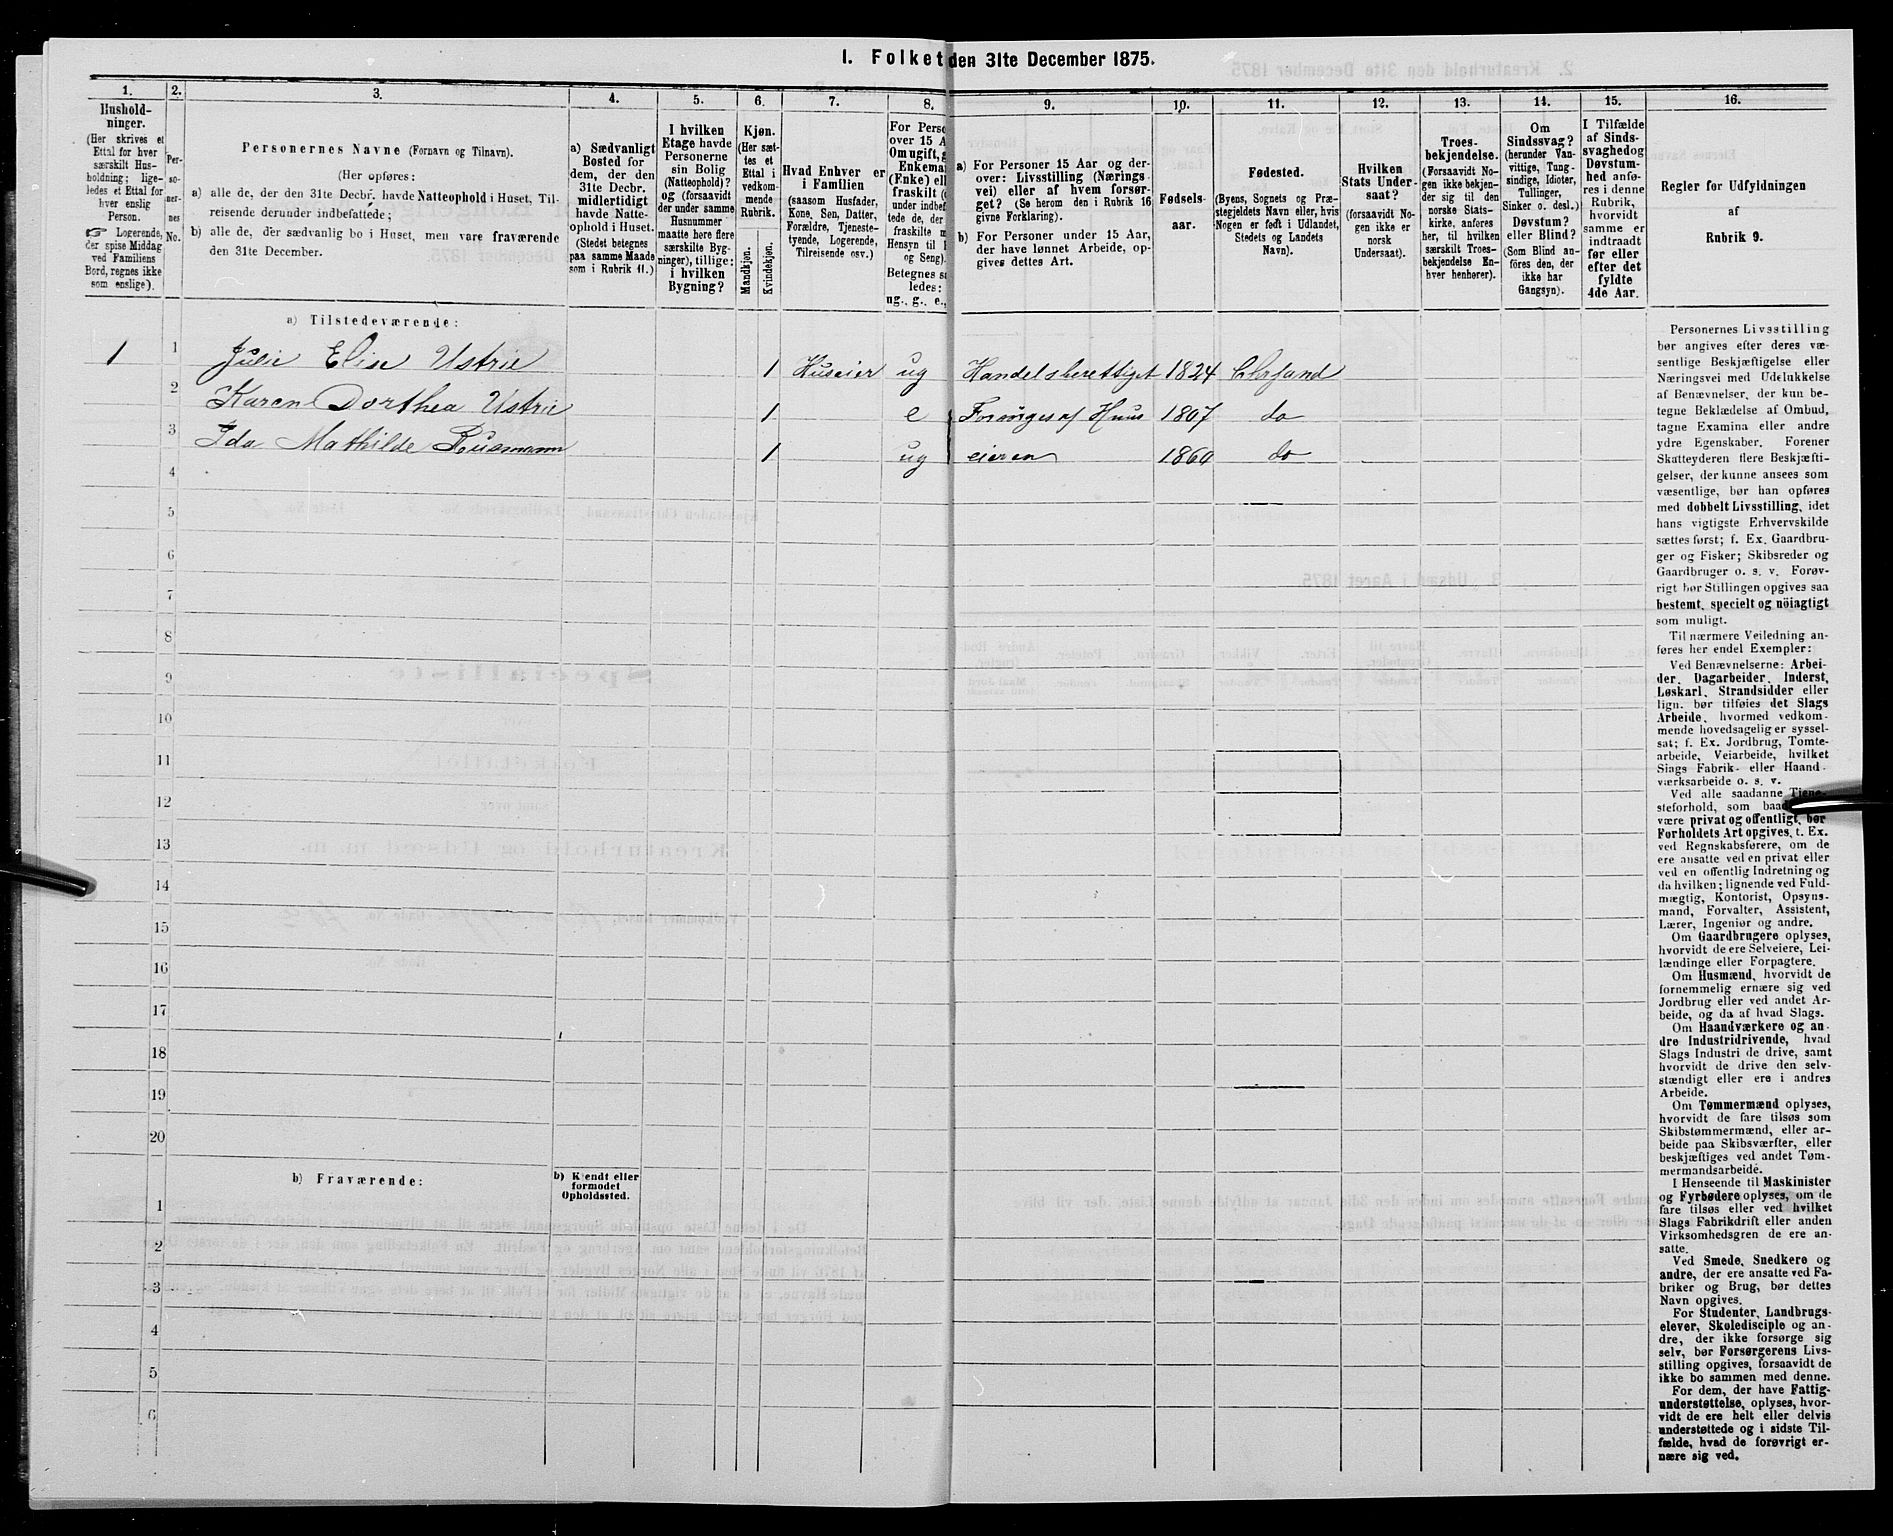 I. Folket den 31te December 1875.
1. 2. 3. 4. 5. 6. 7. 8. 9. 10. 11. 12. 13. 14. 15. 16.
Hushold-
ninger.
(Her skrives et
Ettal for hver
særskilt Hus-
holdning; lige-
ledes et Ettal for
hver enslig
Person.
Logerende,
der spise Middag
ved Familiens
Bord, regnes ikke
som enslige).
Per-
so-
ner-
nes
No.
Personernes Navne (Fornavn og Tilnavn).
(Her opføres:
a) alle de, der den 31te Decbr. havde Natteophold i Huset, Til-
reisende derunder indbefattede;
b) alle de, der sædvanlig bo i Huset, men vare fraværende
den 31te December.
a) Sædvanligt
Bosted for
dem, der den
31te Decbr.
midlertidigt
havde Natte-
ophold i Huset.
(Stedet betegnes
paa samme Maade
som i Rubrik 11.)
I hvilken
Etage havde
Personerne
sin Bolig
(Natteophold)?
og (forsaavidt
der under samme
Husnummer
maatte høre flere
særskilte Byg-
ninger), tillige:
i hvilken
Bygning?
Kjøn.
(Her sæt-
tes et
Ettal i
vedkom-
mende
Rubrik.
Mandkjøn.
Kvindekjøn.
Hvad Enhver er
i Familien
(saasom Husfader,
Kone, Søn, Datter,
Forældre, Tjeneste-
tyende, Logerende,
Tilreisende osv.)
For Perso
over 15 A
Om ugift, g
Enkema
(Enke) ell
fraskilt (
under indbef
tede de, der
fraskilte m
Hensyn til
og Seng).
Betegnes sa
ledes:
ug., g., e.,
a) For Personer 15 Aar og der-
over: Livsstilling (Nærings
vei) eller af hvem forsør-
get? (Se herom den i Rubrik 16
givne Forklaring).
b) For Personer under 15 Aar,
der have lønnet Arbeide, op-
gives dettes Art.
Fødsels-
aar.
Fødested.
(Byens, Sognets og Præ-
stegjeldets Navn eller, hvis
Nogen er født i Udlandet,
Stedets og Landets
Navn).
Hvilken
Stats Under-
saat?
(forsaavidt No-
gen ikke er
norsk
Undersaat).
Troes-
bekjendelse.
(Forsaavidt No-
gen ikke bekjen-
der sig til den
norske Stats-
kirke, anføres
her, til hvilken
særskilt Troes-
bekjendelse En-
hver henhører).
Om
Sindssvag?
(herunder Van-
vittige, Tung-
sindige, Idioter,
Tullinger,
Sinker o. desl.)
Døvstum?
eller Blind?
(Som Blind an-
føres den, der
ikke har
Gangsyn).
I Tilfælde
af Sinds-
svaghed og
Døvstum-
hed anfø-
res i denne
Rubrik,
hvorvidt
samme er
indtraadt
før eller
efter det
fyldte
4de Aar.
Regler for Udfyldningen
af
Rubrik 9.
a) Tilstedeværende:
1 1 Julie Elise Ustrie 1 Huseier ug Handelsberettiget 1824 Chrsand
2 Karen Dorthea Ustrie 1 e Forsørges af Huus 1807 do
3 Ida Mathilde 1 ug eieren 1860 do
4
5
6
7
8
9
10
11
12
13
14
15
16
17
18
19
20
b) Fraværende:
b) Kjendt eller
formodet
Opholdssted.
1
2
3
4
5
6
Personernes Livsstilling
bør angives efter deres væ-
sentlige Beskjæftigelse eller
Næringsvei med Udelukkelse
af Benævnelser, der kun be-
tegne Beklædelse af Ombud,
tagne Examina eller andre
ydre Egenskaber. Forener
Skatteyderen flere Beskjæfti-
gelser, der kunne ansees som
væsentlige, bør han opføres
med dobbelt Livsstilling, idet
hans vigtigste Erhvervskilde
sættes først; f. Ex. Gaardbru-
ger og Fisker; Skibsreder og
Gaardbruger o. s. v. Forøv-
rigt bør Stillingen opgives saa
bestemt, specielt og nöiagtigt
som muligt.
Til nærmere Veiledning an-
føres her endel Exempler:
Ved Benævnelserne: Arbei-
der, Dagarbeider, Inderst,
Løskarl, Strandsidder eller
lign. bør tilføies det Slags
Arbeide, hvormed vedkom-
mende hovedsagelig er syssel-
sat; f. Ex. Jordbrug, Tomte-
arbeide, Veiarbeide, hvilket
Slags Fabrik- eller Haand-
værksarbeide o. s. v.
Ved alle saadanne Tjene-
steforhold, som baade
være privat og offentligt, bør
Forholdets Art opgives, t. Ex.
ved Regnskabsførere, om de
ere ansatte ved en privat eller
ved en offentlig Indretning og
da hvilken; lignende ved Fuld-
mægtig, Kontorist, Opsyns-
mand, Forvalter, Assistent,
Lærer, Ingeniør og andre.
Om Gaardbrugere oplyses,
hvorvidt de ere Selveiere, Lei-
lændinge eller Forpagtere.
Om Husmænd, hvorvidt de
fornemmelig ernære sig ved
Jordbrug eller ved andet Ar-
beide, og da af hvad Slags.
Om Haandværkere og an-
dre Industridrivende, hvad
Slags Industri de drive, samt
hvorvidt de drive den selv-
stændigt eller ere i andres
Arbeide.
Om Tømmermænd oplyses,
hvorvidt de fare tilsøs som
Skibstømmermænd, eller ar-
beide paa Skibsværfter, eller
beskjæftiges ved andet Tøm-
mermandsarbeide.
I Henseende til Maskinister
og Fyrbødere oplyses, om de
fare tilsøs eller ved hvilket
Slags Fabrikdrift eller anden
Virksomhedsgren de ere an-
satte.
Ved Smede, Snedkere og
andre, der ere ansatte ved Fa-
briker og Brug, bør dettes
Navn opgives.
For Studenter, Landbrugs-
elever, Skoledisciple og an-
dre, der ikke forsørge sig
selv, bør Forsørgerens Livs-
stilling opgives, forsaavidt de
ikke bo sammen med denne.
For dem, der have Fattig-
understøttelse, oplyses, hvor-
vidt de ere helt eller delvis
understøttede og i sidste Til-
fælde, hvad de forøvrigt er-
nære sig ved.